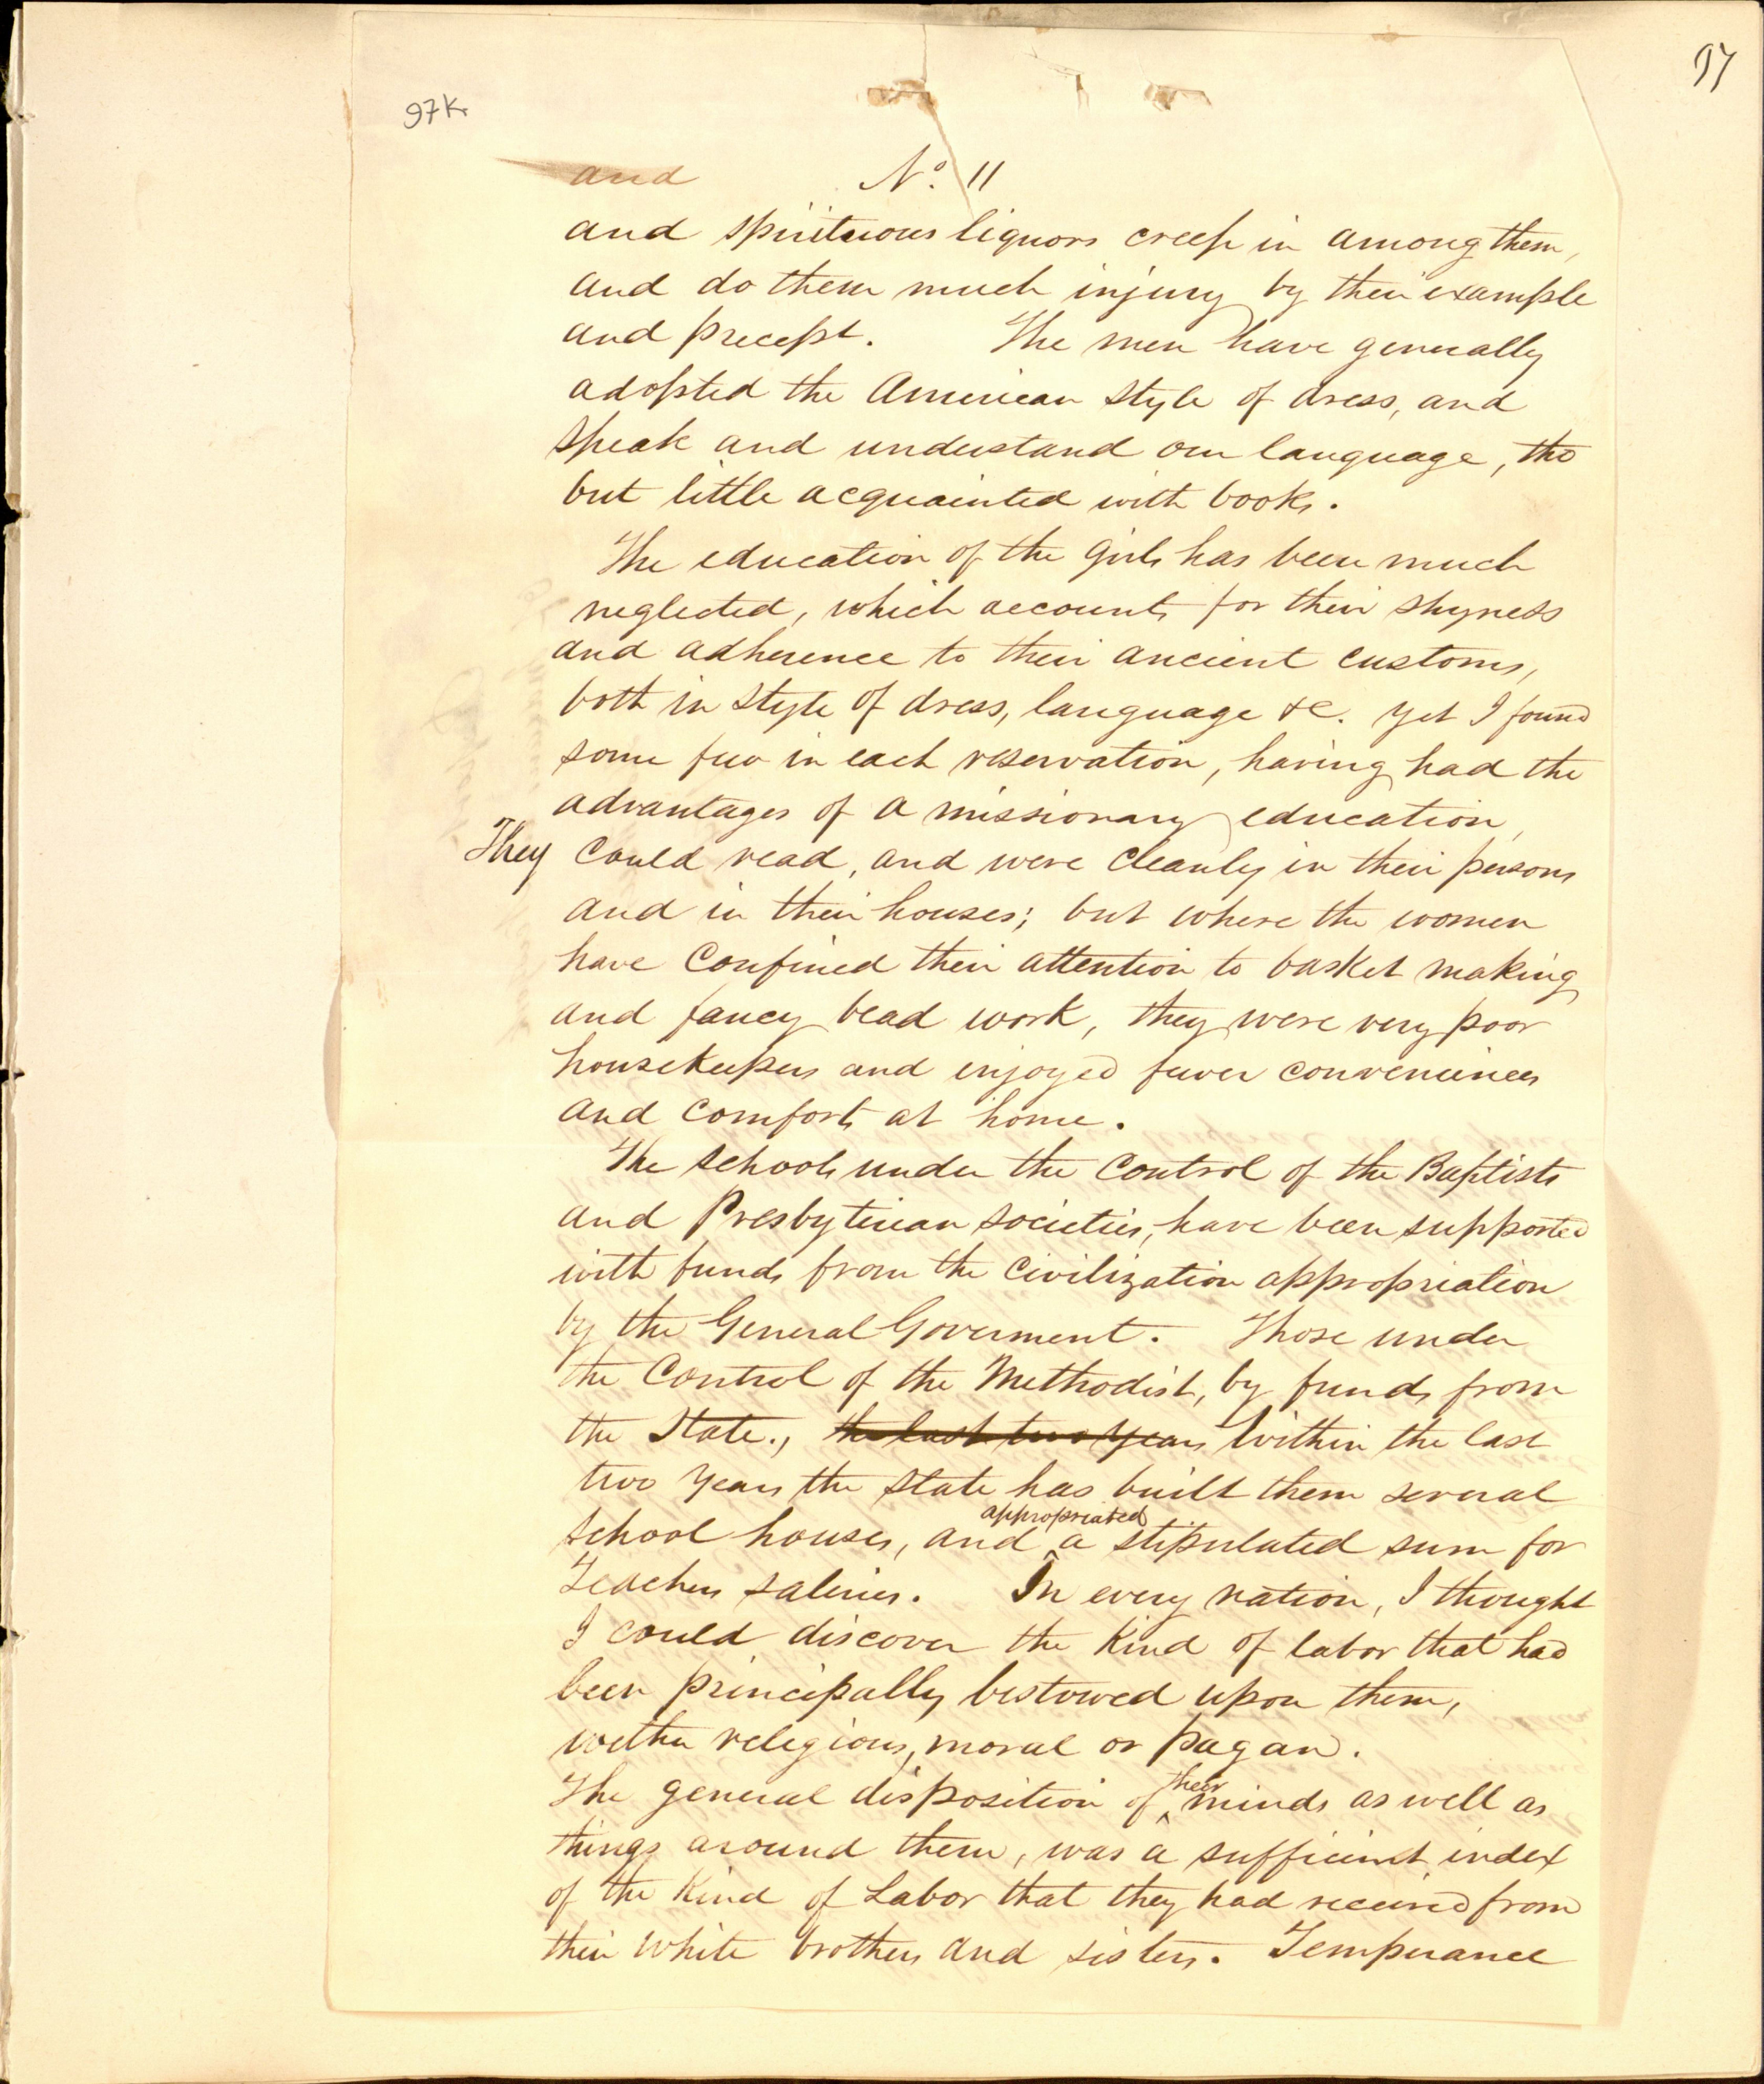 97
97K
and N.o 11
and spirituous liquors creep in among them,
and do them much injury by their example
and precept. The men have generally
adopted the American style of dress, and
speak and understand our language, tho
but little acquainted with books.
The education of the girls has been much
neglected, which accounts for their shyness
and adherence to their ancient customs,
both in style of dress, language &c. yet I found
some few in each reservation, having had the
advantages of a missionary education,
They could read, and were cleanly in their persons
and in their houses; but where the women
have confined their attention to basket making
and fancy bead work, they were very poor
housekeepers and enjoyed fewer conveniences
and comforts at home.
The schools under the control of the Baptists
and Presbyterian societies, have been supported
with funds from the civilization appropriation
by the General Goverment. Those under
the control of the Methodist, by funds from
the State., the last two years Within the last
two years the state has built them several
appropriated
school houses, and a stipulated sum for
Teachers saleries. In every nation, I thought
I could discover the kind of labor that had
been principally bestowed upon them,
wether religious, moral or pagan.
their
The general disposition of minds as well as
things around them, was a sufficient index
of the kind of Labor that they had received from
their white brothers and sisters. Temperance